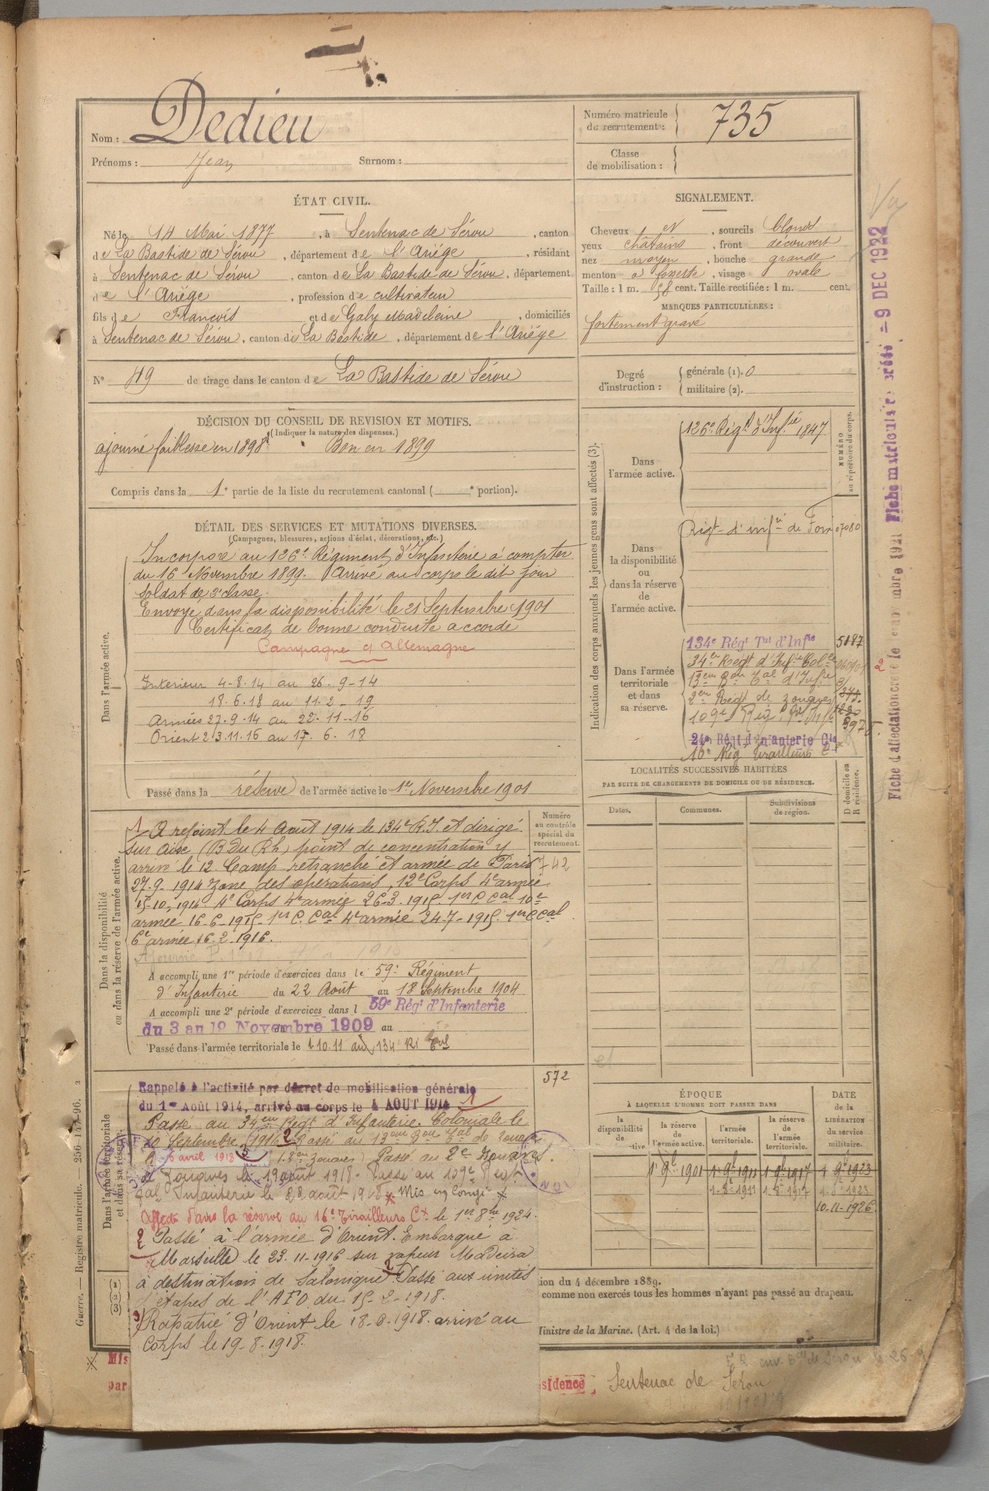 Nom : Dedieu
Prénoms : Jean Surnom :
Numéro matricule du recrutement : 735
Classe de mobilisation :
ÉTAT CIVIL.
Né le 14 Mai 1877, à Sentenac de Sérou, canton
de La Bastide de Sérou, département de l'Ariège, résidant
à Sentenac de Sérou, canton de La Bastide de Sérou, département
de l'Ariège, profession de cultivateur
fils de François et de Galy Madeleine, domiciliés
à Sentenac de Sérou, canton de La Bastide, département de l'Ariège
N° 49 de tirage dans le canton de La Bastide de Sérou
SIGNALEMENT.
Cheveux et, sourcils blonds
yeux châtains, front découvert
nez moyen, bouche grande
menton à fossette, visage ovale
Taille : 1 m. 58 cent. Taille rectifiée : 1 m. cent.
MARQUES PARTICULIÈRES :
fortement gravé
Degré d'instruction : générale (1). 0
militaire (2).
DÉCISION DU CONSEIL DE REVISION ET MOTIFS.
(Indiquer la nature des dispenses.)
ajourné faiblesse en 1898 Bon en 1899
Compris dans la 1e partie de la liste du recrutement cantonal ( e portion).
DÉTAIL DES SERVICES ET MUTATIONS DIVERSES.
(Campagnes, blessures, actions d'éclat, décorations, etc.)
Dans l'armée active.
Incorporé au 126e Régiment d'Infanterie à compter
du 16 Novembre 1899. Arrivé au corps le dit jour
soldat de 2e classe.
Envoyé dans la disponibilité le 21 Septembre 1901
Certificat de bonne conduite accordé
Campagne c/ Allemagne
Intérieur 4-8-14 au 26-9-14
18.6.18 au 11-2-19
Armées 27.9.14 au 22-11-16
Orient 23.11.16 au 17.6.18
Passé dans la réserve de l'armée active le 1er Novembre 1901
Indication des corps auxquels les jeunes gens sont affectés (3).
NUMÉRO au répertoire du corps.
Dans l'armée active.
126e Régt d'Infie 1847
Dans la disponibilité ou dans la réserve de l'armée active.
Régt d'infie de Foix 07080
Dans l'armée territoriale et dans sa réserve.
134e Régt Tal d'Infie 5087
34e Régt d'Infie Colle
2em Régt de zouaves
109e Rég
24e Régt d'Infanterie Cle
16e Rég Tirailleurs
LOCALITÉS SUCCESSIVES HABITÉES
PAR SUITE DE CHANGEMENTS DE DOMICILE OU DE RÉSIDENCE.
Dates. Communes. Subdivisions de région. D domicile ou R résidence.
Numéro au contrôle spécial du recrutement.
742
572
Dans la disponibilité ou dans la réserve de l'armée active.
A rejoint le 4 Août 1914 le 134e R.I. et dirigé
sur Aix (B du Rh) point de concentration y
arrivé le 12. Camp retranché et armée de Paris
27-9-1914 Zone des opérations, 12e Corps 4e armée
15-10-1914 4e Corps 4e armée 26-3-1915 1er C Cal 10e
armée 16-6-1915 1er C. Cal 4e armée 24-7-1915 1er C Cal
6e armée 16-2-1916.
A accompli une 1re période d'exercices dans le 59e Régiment
d'Infanterie du 22 Août au 18 Septembre 1904
A accompli une 2e période d'exercices dans l 59e Régt d'Infanterie
du 3 au 19 Novembre 1909 au
Passé dans l'armée territoriale le 1.10.11 au 134 RI
Dans l'armée territoriale et dans sa réserve.
Rappelé à l'activité par décret de mobilisation générale
du 1er Août 1914, arrivé au corps le 4 AOUT 1914
Passé au 34em Régt d'Infanterie Coloniale le
10 Septembre 1916 Passé au 13em Bon Tal de zouaves
5 avril 1918 Passé au 2e Zouaves
Zouaves le 19 août 1918. Passé au 109e Régt
Tal Infanterie le août 1918 Mis en Congé
Affecté dans la réserve au 16e Tirailleurs Cx le 1er 8bre 1924.
2 Passé à l'armée d'Orient. Embarqué à
Marseille le 23.11.1916 sur vapeur Madeira
à destination de Salonique Passé aux unités
d'étapes de l'AFO du 15-2-1918.
3) Rapatrié d'Orient le 18-6-1918. arrivé au
corps le 19-8-1918.
ÉPOQUE
À LAQUELLE L'HOMME DOIT PASSER DANS
la disponibilité de l'active. la réserve de l'armée active. l'armée territoriale. la réserve de l'armée territoriale.
DATE de la LIBÉRATION du service militaire.
1er 9bre 1901 1-9-1911 1-9-1917 1-9-1923
1-8-1911 1-8-1917 1-8-1923
10-11-1926
ion du 4 décembre 1889.
comme non exercés tous les hommes n'ayant pas passé au drapeau.
Ministre de la Marine. (Art. 4 de la loi.)
Mis
par
sidence Sentenac de Sérou
Guerre. — Registre matricule.
Fiche matriculaire créée — 9 DEC 1922